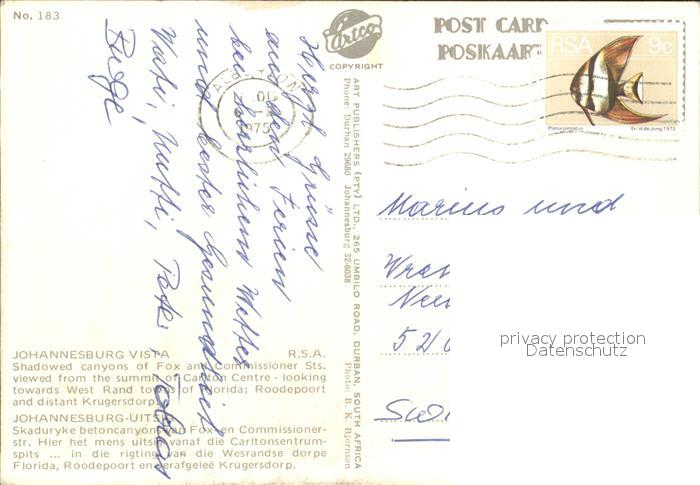 No. 183
Artco
COPYRIGHT
POST CARD
POSKAART
RSA 9c
Platax pinnatus
Ernst de Jong 1973
ALBERTON
1975
ART PUBLISHERS (PTY) LTD., 265 UMBILO ROAD, DURBAN, SOUTH AFRICA
Phone: Durban 29680 Johannesburg 32-6038
Photo: B. K. Bjornsen
Grüsse
aus den Ferien
bei herrlichem Wetter
und bester Gesundheit
Peter, Tobias
Marius und
privacy protection
Datenschutz
JOHANNESBURG VISTA R.S.A.
Shadowed canyons of Fox and Commissioner Sts.
viewed from the summit of Carlton Centre - looking
towards West Rand towns of Florida; Roodepoort
and distant Krugersdorp.
JOHANNESBURG-UITSIG
Skaduryke betoncanyons van Fox- en Commissioner-
str. Hier het mens uitsig vanaf die Carltonsentrum-
spits ... in die rigting van die Wesrandse dorpe
Florida, Roodepoort en verafgeleë Krugersdorp.